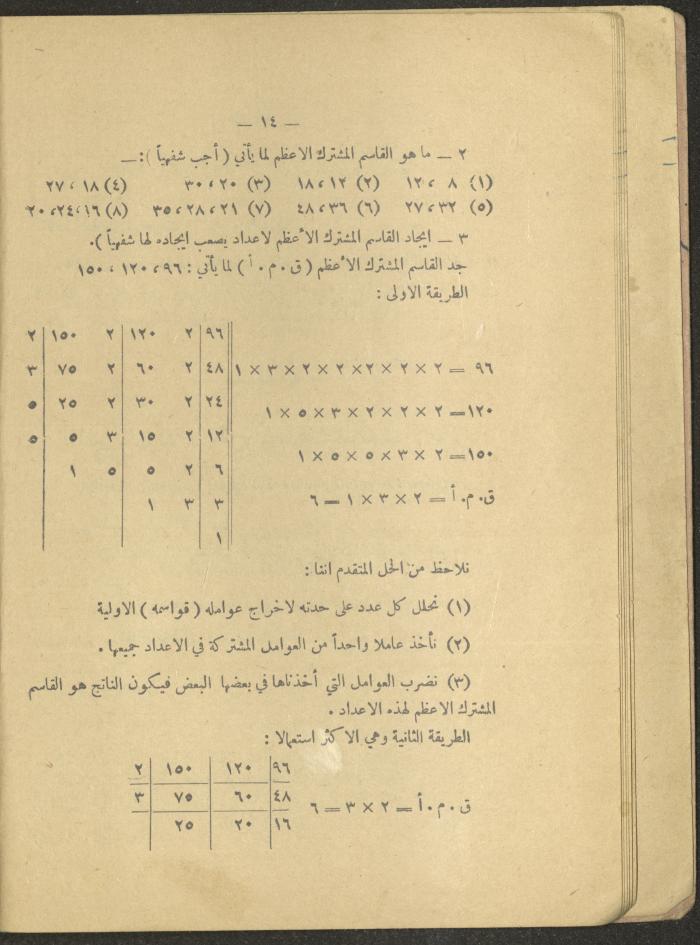 — ١٤ —
٢ — ما هو القاسم المشترك الاعظم لما يأتي ( أجب شفهياً ) : —
(١) ٨ ، ١٢ (٢) ١٢ ، ١٨ (٣) ٢٠ ، ٣٠ (٤) ١٨ ، ٢٧
(٥) ٣٢ ، ٢٧ (٦) ٣٦ ، ٤٨ (٧) ٢١ ، ٢٨ ، ٣٥ (٨) ١٦ ، ٢٤ ، ٢٠
٣ — ايجاد القاسم المشترك الأعظم لاعداد يصعب ايجاده لها شفهياً ) .
جد القاسم المشترك الأعظم ( ق . م . أ ) لما يأتي : ٩٦ ، ١٢٠ ، ١٥٠
الطريقة الاولى :
٩٦ ٢ | ١٢٠ ٢ | ١٥٠ ٢
٩٦ = ٢ × ٢ × ٢ × ٢ × ٢ × ٣ × ١ ٤٨ ٢ | ٦٠ ٢ | ٧٥ ٣
٢٤ ٢ | ٣٠ ٢ | ٢٥ ٥
١٢٠ = ٢ × ٢ × ٢ × ٣ × ٥ × ١
١٢ ٢ | ١٥ ٣ | ٥ ٥
١٥٠ = ٢ × ٣ × ٥ × ٥ × ١
٦ ٢ | ٥ ٥ | ١
ق . م . أ = ٢ × ٣ × ١ = ٦
٣ ٣ | ١
١
نلاحظ من الحل المتقدم اننا :
(١) نحلل كل عدد على حدته لاخراج عوامله ( قواسمه ) الاولية
(٢) نأخذ عاملا واحداً من العوامل المشتركة في الاعداد جميعها .
(٣) نضرب العوامل التي أخذناها في بعضها البعض فيكون الناتج هو القاسم
المشترك الاعظم لهذه الاعداد .
الطريقة الثانية وهي الاكثر استعمالا :
٩٦ | ١٢٠ | ١٥٠ | ٢
ق . م . أ = ٢ × ٣ = ٦ ٤٨ | ٦٠ | ٧٥ | ٣
١٦ | ٢٠ | ٢٥